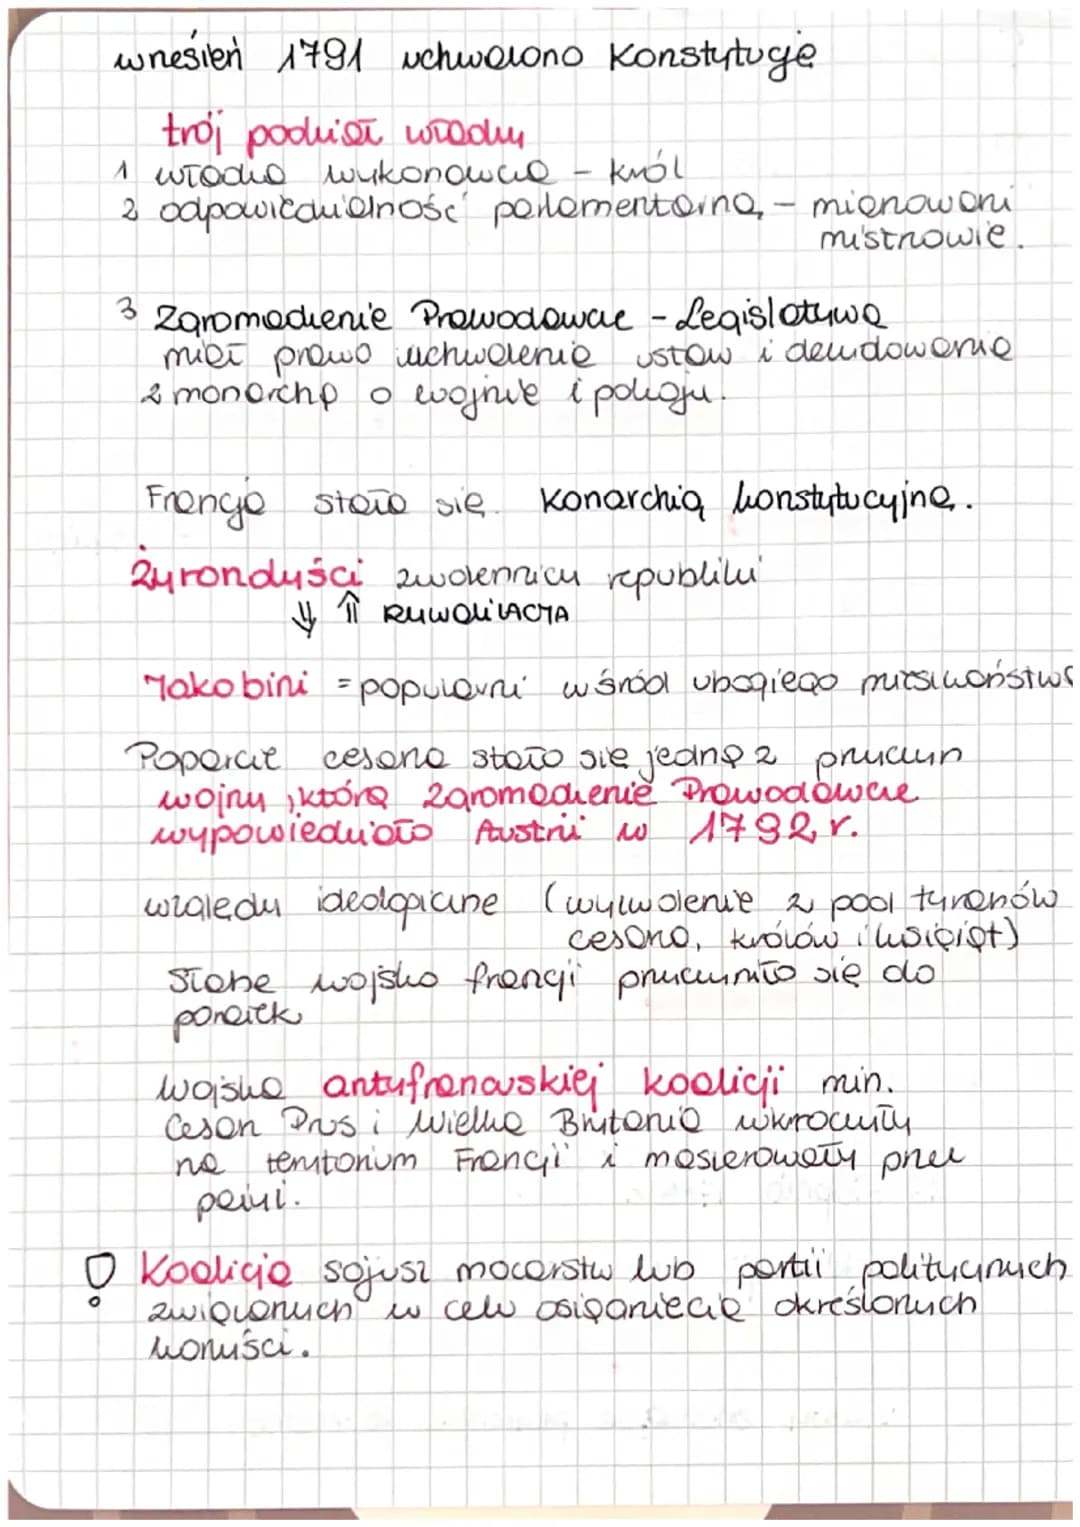 wrzesień 1791 uchwalono Konstytucję
trój podział władzy
1 władza wykonawcza - król
2 odpowiedzialność parlamentarna, - mianowani
ministrowie.
3 Zgromadzenie Prawodawcze - Legislatywa
miał prawo uchwalenia ustaw i decydowania
z monarchą o wojnie i pokoju.
Francja stała się Konarchią konstytucyjną.
Żyrondyści zwolennicy republiki
⇓ ⇑ RYWALIZACJA
Jakobini = popularni wśród ubogiego mieszczaństwa
Poparcie cesarza stało się jedną z przyczyn
wojny, którą Zgromadzenie Prawodawcze
wypowiedziało Austrii w 1792 r.
względy ideologiczne (wyzwolenie z pod tyranów
cesarza, królów i książąt)
Słabe wojsko francji przyczyniło się do
porażek
wojska antyfrancuskiej koalicji min.
Cesarz Prus i Wielka Brytania wkroczyły
na terytorium Francji i maszerowały przez
paryż.
! Koalicja sojusz mocarstw lub partii politycznych
związanych w celu osiągania określonych
korzyści.